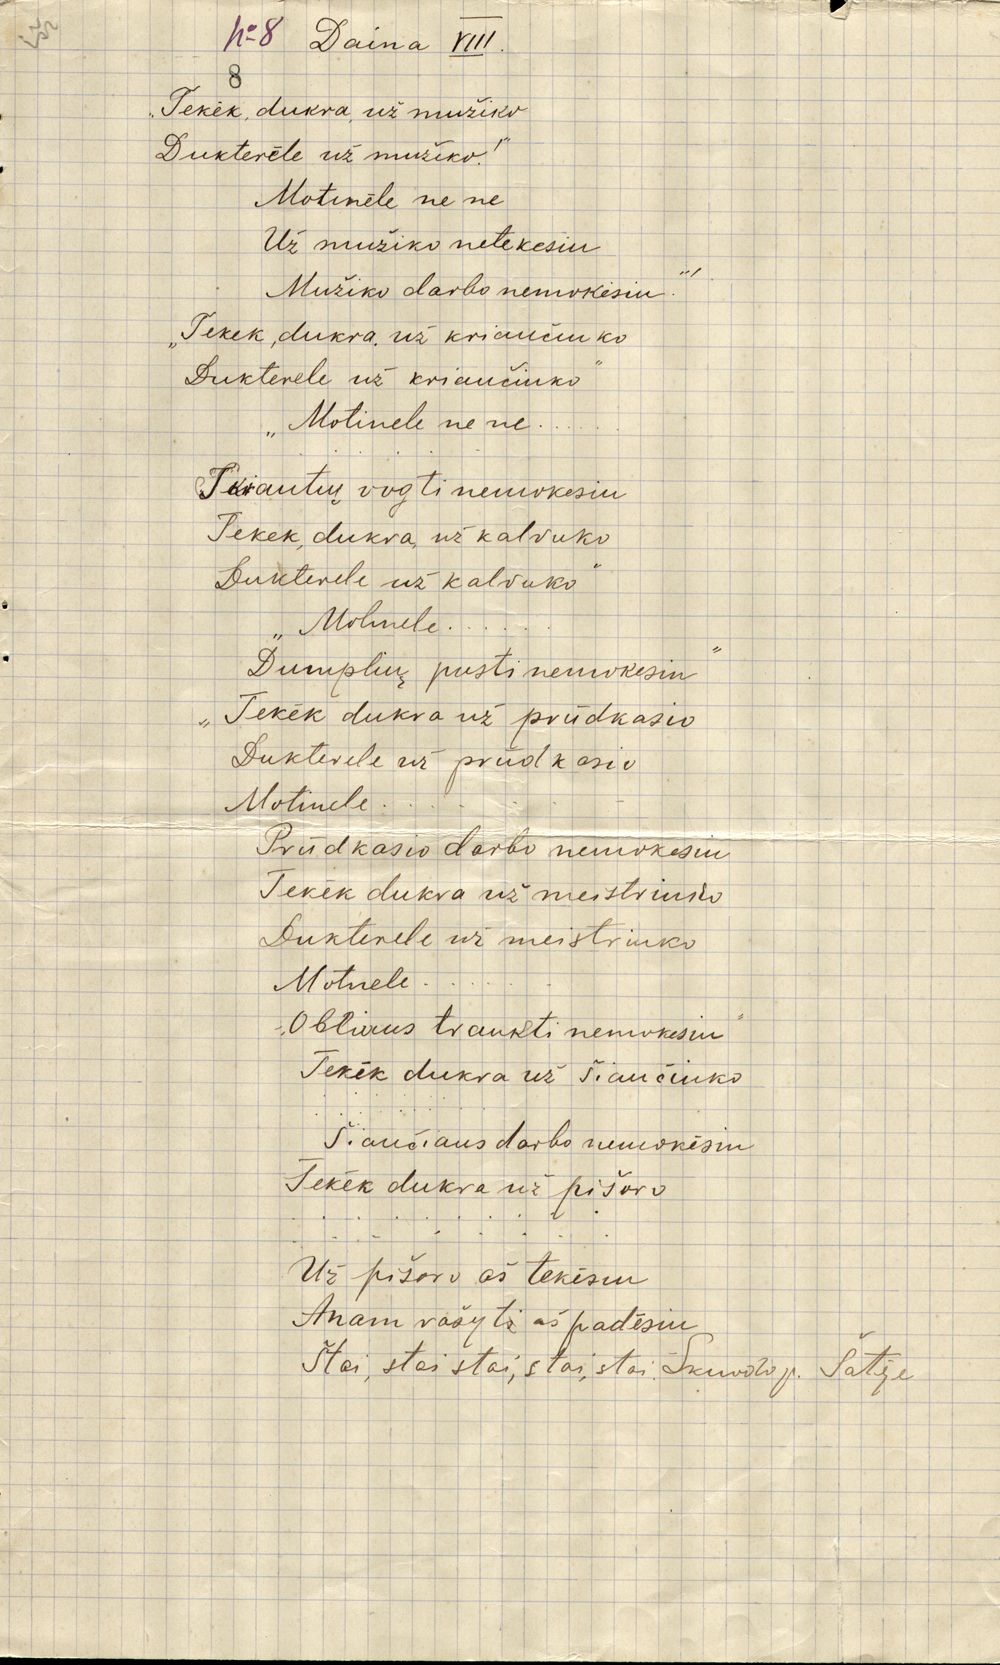 № 8 Daina VIII.
8
„Tekėk, dukra, už mužiko
Dukterėle už mužiko!"
Motinėle ne ne
Už mužiko netekėsiu
Mužiko darbo nemokėsiu."
„Tekek, dukra, už kriaučiuko
Dukterele už kriaučiuko"
„Motinele ne ne . . . . .
. . . . .
vogti nemokesiu
Tekek, dukra, už kalvuko
Dukterele už kalvuko"
„Motinele . . . . . .
Dumplių pusti nemokesiu"
„Tekėk dukra už prūdkasio
Dukterele už prūdkasio
Motinele . . . . . .
Prūdkasio darbo nemokesiu
Tekėk dukra už meistriuko
Dukterele už meistriuko
Motnele . . . . . .
„Obliaus traukti nemokesiu"
Tekėk dukra už šiaučiuko
. . . . . . . .
Šiaučiaus darbo nemokėsiu
Tekėk dukra už pišoro
. . . . . . . .
. . . . . . . .
Už pišoro aš tekėsiu
Anam rašyti aš padėsiu
Štai, stai stai, stai, stai. Skuodo p. Šatėje